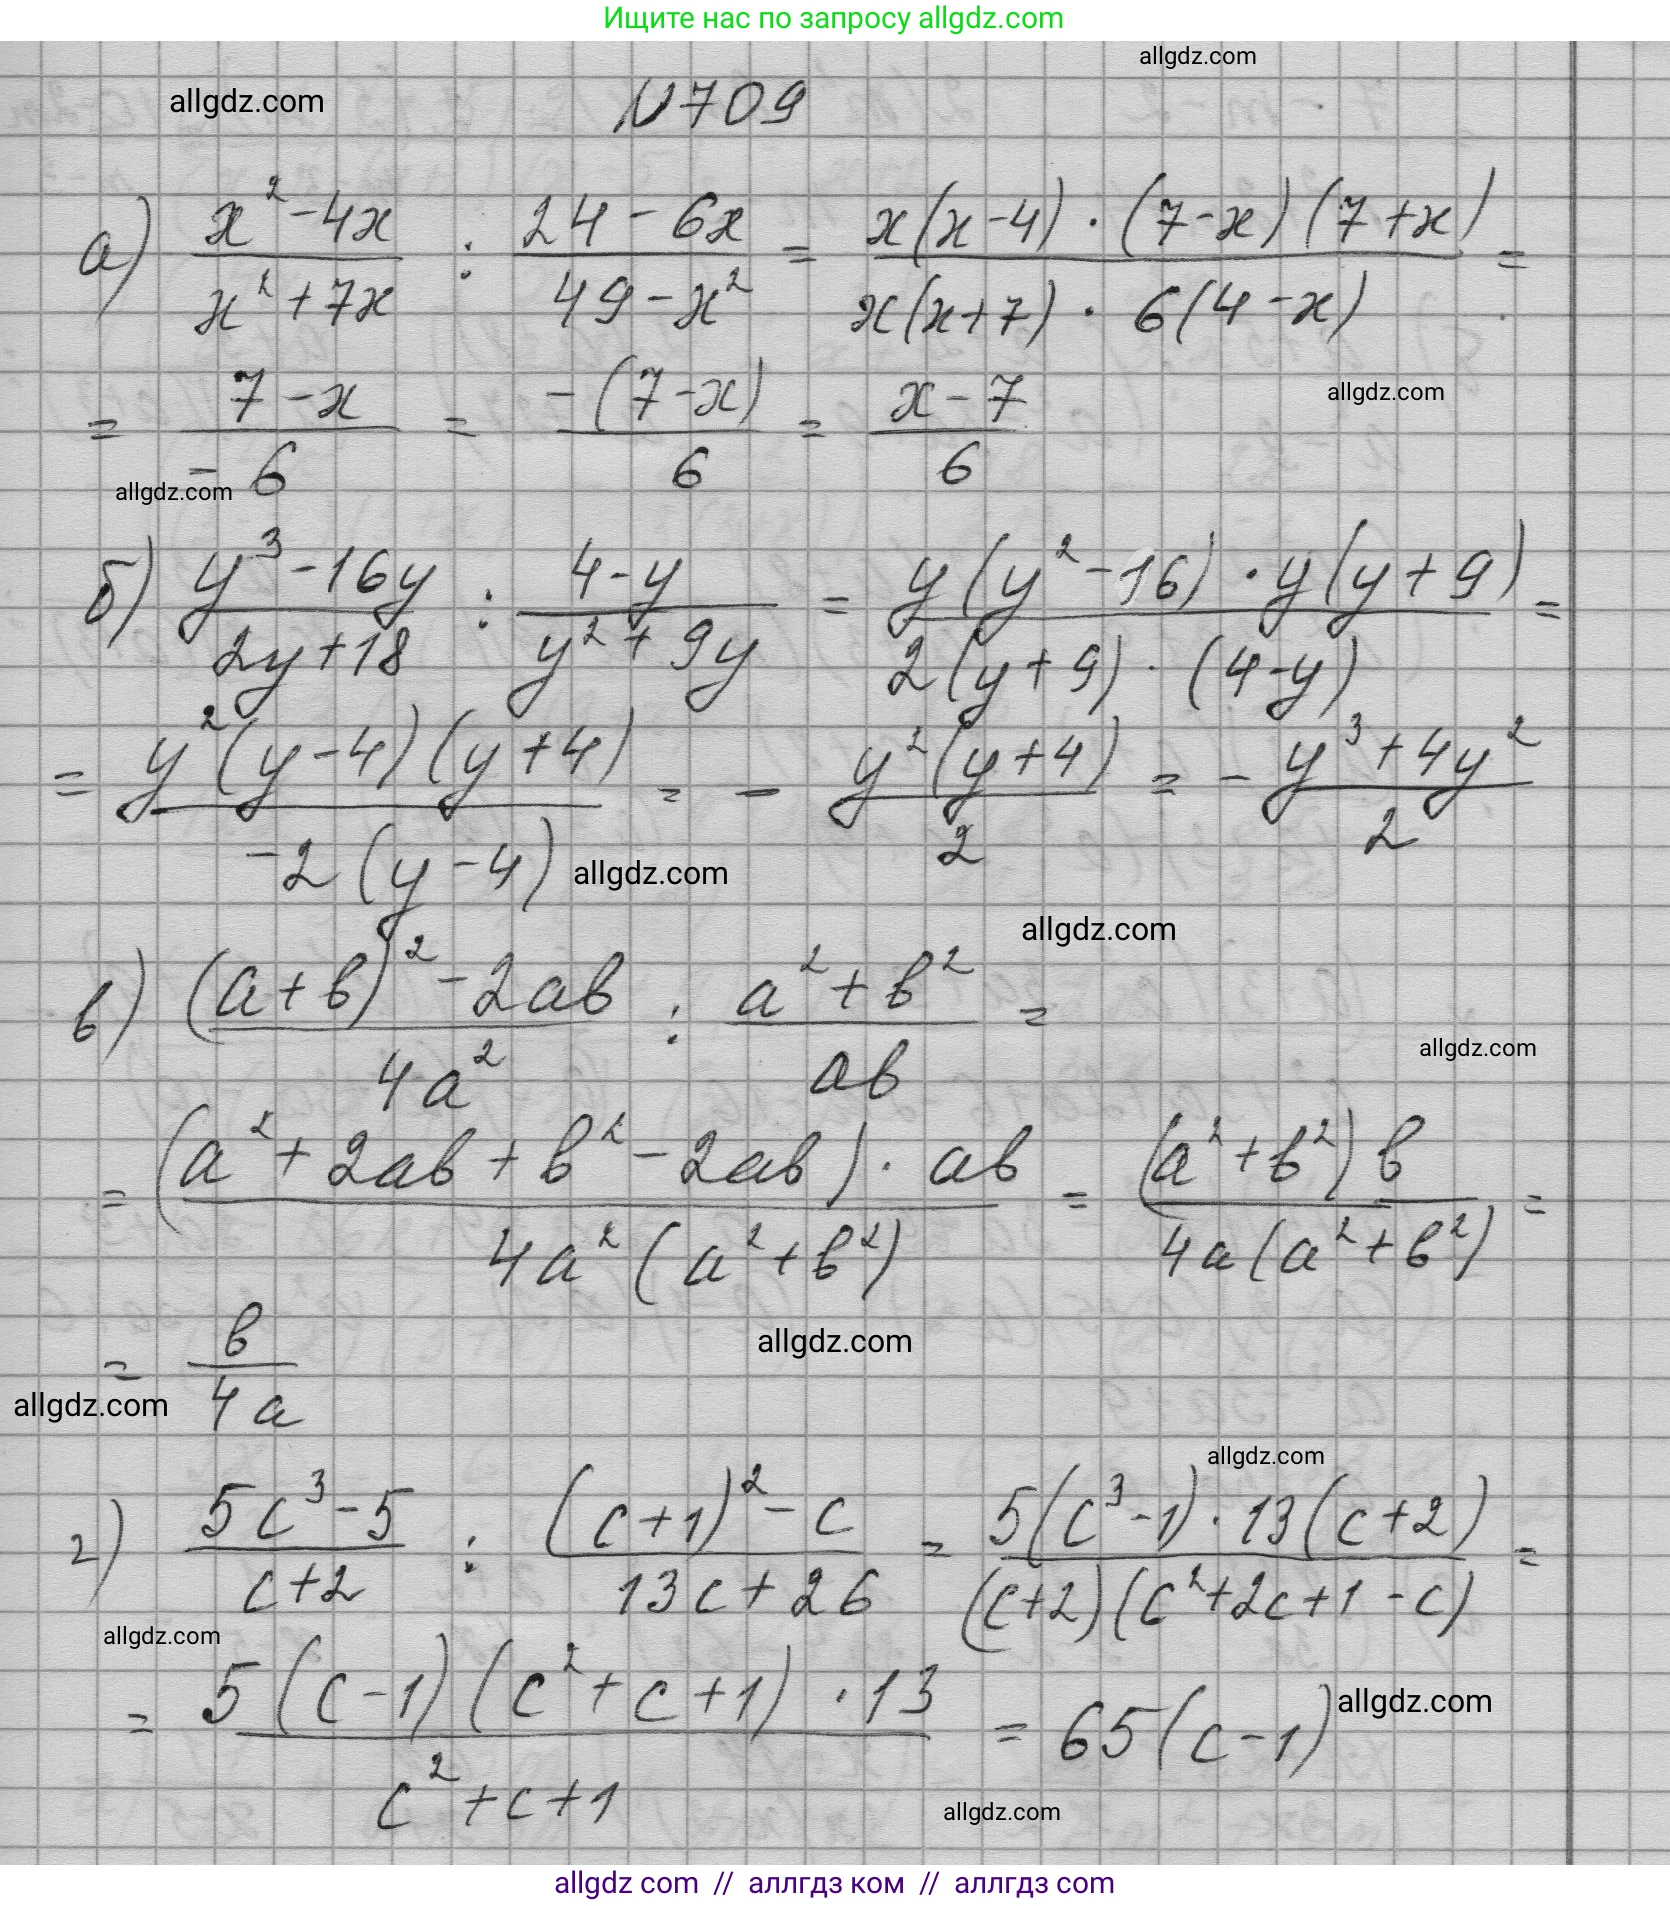 Ищите нас по запросу allgdz.com
allgdz.com
allgdz.com
N709
а) (x² - 4x)/(x² + 7x) : (24 - 6x)/(49 - x²) = (x(x - 4) · (7 - x)(7 + x))/(x(x + 7) · 6(4 - x)) =
= (7 - x)/(-6) = (-(7 - x))/6 = (x - 7)/6
allgdz.com
allgdz.com
б) (y³ - 16y)/(2y + 18) : (4 - y)/(y² + 9y) = (y(y² - 16) · y(y + 9))/(2(y + 9) · (4 - y)) =
= (y²(y - 4)(y + 4))/(-2(y - 4)) = - (y²(y + 4))/2 = - (y³ + 4y²)/2
allgdz.com
allgdz.com
в) ((a + b)² - 2ab)/(4a²) : (a² + b²)/(ab) =
allgdz.com
= ((a² + 2ab + b² - 2ab) · ab)/(4a²(a² + b²)) = ((a² + b²)b)/(4a(a² + b²)) =
= b/(4a)
allgdz.com
allgdz.com
allgdz.com
г) (5c³ - 5)/(c + 2) : ((c + 1)² - c)/(13c + 26) = (5(c³ - 1) · 13(c + 2))/((c + 2)(c² + 2c + 1 - c)) =
allgdz.com
= (5(c - 1)(c² + c + 1) · 13)/(c² + c + 1) = 65(c - 1)
allgdz.com
allgdz.com
allgdz com // аллгдз ком // аллгдз com